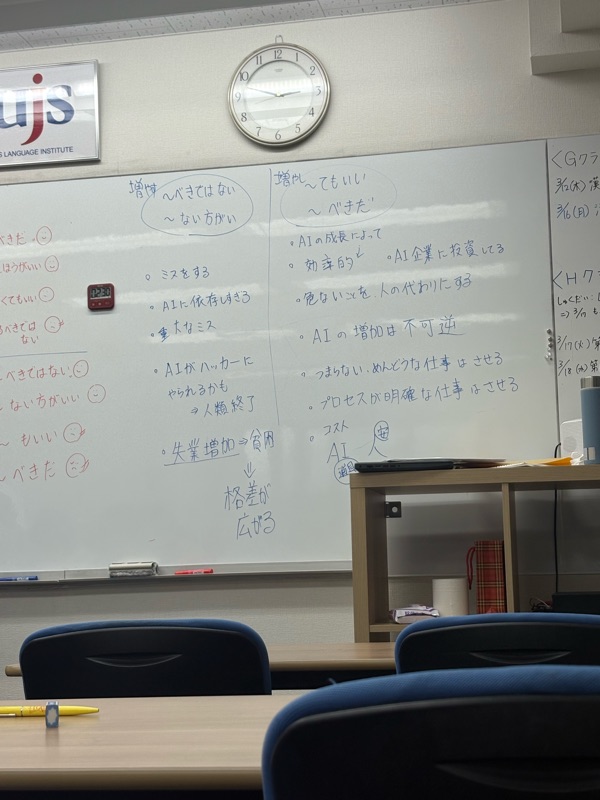 ujs
LANGUAGE INSTITUTE
12 1 2 3 4 5 6 7 8 9 10 11
べきだ
ほうがいい
くてもいい
べきでは
ない
べきではない
～ない方がいい
～もいい
～べきだ
増やす
～べきではない
～ない方がいい
・ミスをする
・AIに依存しすぎる
・重大なミス
・AIがハッカーに
やられるかも
⇒人類終了
・失業増加⇒貧困
⇓
格差が
広がる
増やし
～てもいい
～べきだ
・AIの成長によって
・効率的
・AI企業に投資してる
・危ないことを人の代わりにする
・AIの増加は不可逆
・つまらない、めんどうな仕事はさせる
・プロセスが明確な仕事はさせる
・コスト
AI 人
安
<Gクラ
3/12(木) 漢
3/16(月)
<Hク
しゅくだい:
⇒3/17 も
3/17(火) 第
3/18(水) 第